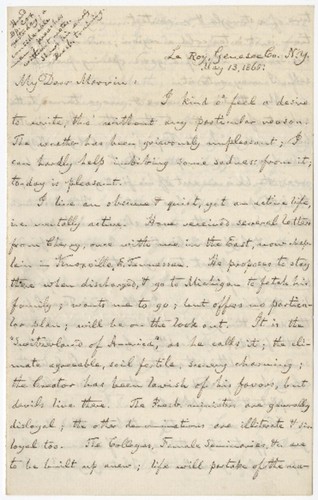 Le Roy, Genesee Co. N.Y.
May 13, 1865.
My Dear Marvin:
I kind o' feel a desire
to write, tho' without any particular reason.
The weather has been grievously unpleasant; I
can hardly help imbibing some sadness from it;
to-day is pleasant.
I live an obscure & quiet, yet an active life,
i.e. mentally active. Have received several letters
from Cherry, once with me in the East, now chap-
lain in Knoxville, E. Tennessee. He proposes to stay
there when discharged, & go to Michigan to fetch his
family; wants me to go; but offers no particu-
lar plan; will be on the look out. It is the
"Switzerland of America", as he calls it; the cli-
mate agreeable, soil fertile, scenery charming;
the Creator has been lavish of his favors, but
devils live there. The Presb. ministers are generally
disloyal; the other denominations are illiterate & dis-
loyal too. The Colleges, Female Seminaries, &c are
to be built up anew; life will partake of the new-